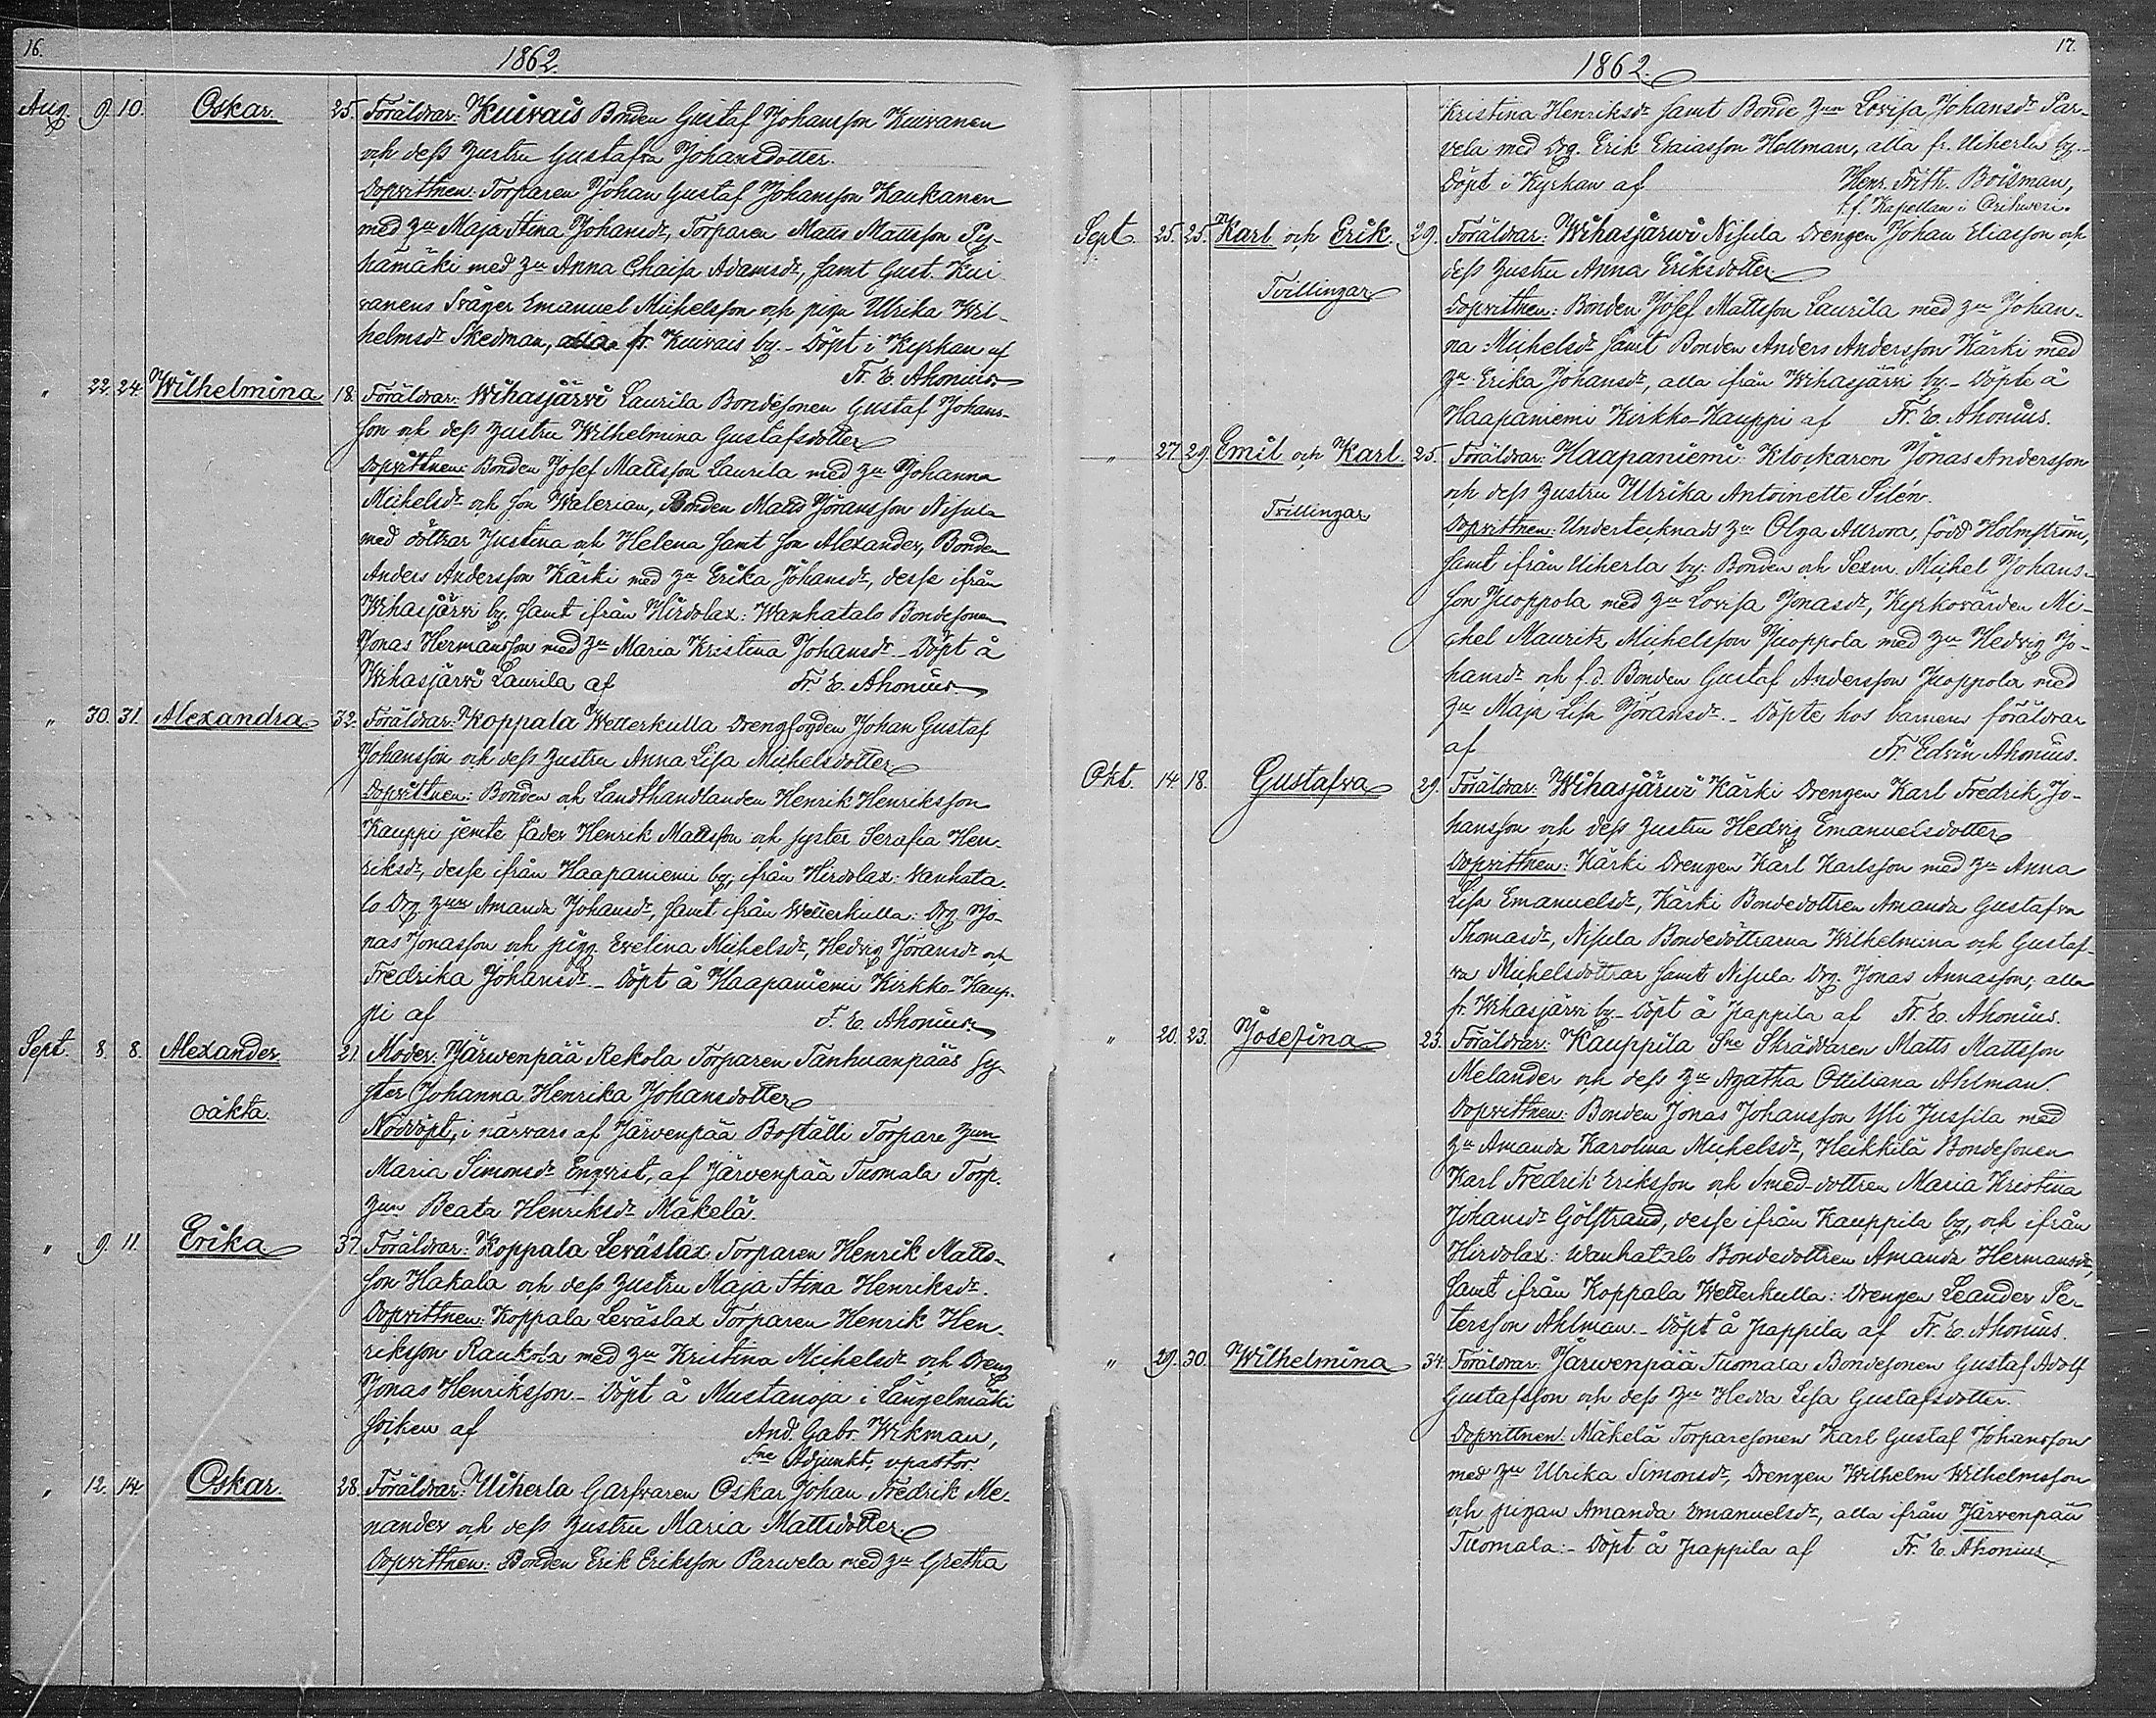 16.
1862.
Aug. 9. 10. Oskar. 25. Föräldrar: Kuivais Bonden Gustaf Johansson Kuivanen
och dess hustru Gustafva Johansdotter.
Dopvittnen: Torparen Johan Gustaf Johansson Kaukanen
med hu Maja Stina Johansdr, Torparen Matts Mattsson Py-
hämäki med hu Anna Chaisa Adamsdr, samt Gust. Kui-
vanens Svåger Emanuel Michelsson och pigan Ulrika Wil-
helmsdr Skedman, alla fr. Kuivais by. - Döpt i Kyrkan af
Fr. E. Ahonius.
" 22. 24. Wilhelmina 18. Föräldrar: Wihasjärvi Laurila Bondesonen Gustaf Johans-
son och dess hustru Wilhelmina Gustafsdotter
Dopvittnen: Bonden Josef Mattsson Laurila med hu Johanna
Michelsdr och son Walerian, Bonden Matts Göransson Nisula
med döttrar Justina och Helena samt son Alexander, Bonden
Anders Andersson Kärki med hu Erika Johansdr, desse ifrån
Wihasjärvi by, samt ifrån Hirdolax: Wanhatalo Bondesonen
Jonas Hermansson med hu Maria Kristina Johansdr - Döpt å
Wihasjärvi Laurila af Fr. E. Ahonius.
" 30. 31. Alexandra 32. Föräldrar: Koppala Wetterkulla Drengfogden Johan Gustaf
Johansson och dess hustru Anna Lisa Michelsdotter
Dopvittnen: Bonden och Landthandlanden Henrik Henriksson
Kauppi jemte fader Henrik Mattsson och syster Serafia Hen-
riksdr, desse ifrån Haapaniemi by; ifrån Hirdolax: Vanhata-
lo Drg hun Amanda Johansdr, samt ifrån Wetterkulla: Drg Jo-
nas Jonasson och pigg. Evelina Michelsdr, Hedvig Göransdr och
Fredrika Johansdr. - Döpt å Haapaniemi Kirkko-Kaup-
pi af F. E. Ahonius.
Sept. 8. 8. Alexander 21. Moder: Järwenpää Rekola Torparen Tanhuanpääs sy-
ster Johanna Henrika Johansdotter
oäkta.
Nöddöpt, i närvaro af Järvenpää Boställi Torpare hun
Maria Simonsdr Enqvist, af Järvenpää Tuomala Torp.
hun Beata Henriksdr Mäkelä.
" 9. 11. Erika 37. Föräldrar: Koppala Leväslax Torparen Henrik Matts-
son Hakala och dess hustru Maja Stina Henriksdr.
Dopvittnen: Koppala Leväslax Torparen Henrik Hen-
riksson Raukola med hu Kristina Michelsdr och Dreng
Jonas Henriksson. - Döpt å Mustanoja i Längelmäki
socken af And. Gabr. Wikman,
Sne Adjunkt, vpastor.
" 12. 14. Oskar. 28. Föräldrar: Uiherla Garfvaren Oskar Johan Fredrik Me-
nander och dess hustru Maria Mattsdotter
Dopvittnen: Bonden Erik Eriksson Parwela med hu Gretha
17.
1862.
Kristina Henriksdr samt Bonde hun Lovisa Johansdr Par-
vela med Drg. Erik Esaiasson Hollman, alla fr. Uiherla by. -
Döpt i Kyrkan af Henr. Frith. Boisman,
t.f. Kapellan i Orihwesi.
Sept. 25. 25. Karl och Erik. 29. Föräldrar: Wihasjärwi Nisula Drengen Johan Eliasson och
dess hustru Anna Eriksdotter
Tvillingar
Dopvittnen: Bonden Josef Mattsson Laurila med hu Johan-
na Michelsdr samt Bonden Anders Andersson Kärki med
hu Erika Johansdr, alla ifrån Wihasjärvi by. - Döpte å
Haapaniemi Kirkko-Kauppi af Fr. E. Ahonius.
" 27. 29. Emil och Karl 25. Föräldrar: Haapaniemi: Klockaren Jonas Andersson
och dess hustru Ulrika Antoinette Silén.
Tvillingar
Dopvittnen: Undertecknads hu Olga Aurora, född Holmström,
samt ifrån Uiherla by: Bonden och Sexm. Michel Johans-
son Juoppola med hu Lovisa Jonasdr, Kyrkovärden Mi-
chel Mauritz Michelsson Juoppola med hu Hedvig Jo-
hansdr och f.d. Bonden Gustaf Andersson Juoppola med
hu Maja Lisa Göransdr. - Döpte hos barnens föräldrar
af Fr. Edvin Ahonius.
Okt. 14. 18. Gustafva 29. Föräldrar: Wihasjärwi Kärki Drengen Karl Fredrik Jo-
hansson och dess hustru Hedvig Emanuelsdotter
Dopvittnen: Kärki Drengen Karl Karlsson med hu Anna
Lisa Emanuelsdr, Kärki Bondedottren Amanda Gustafva
Thomasdr, Nisula Bondedöttrarna Wilhelmina och Gustaf-
va Michelsdöttrar samt Nisula Drg. Jonas Annasson, alla
fr. Wihasjärvi by. - Döpt å pappila af Fr. E. Ahonius.
" 20. 23. Josefina 23. Föräldrar: Kauppila Sne Skräddaren Matts Mattsson
Melander och dess hu Agatha Ottiliana Ahlman.
Dopvittnen: Bonden Jonas Johansson Yli Jussila med
hu Amanda Karolina Michelsdr, Heikkilä Bondesonen
Karl Fredrik Eriksson och Smed-dottren Maria Kristina
Johansdr Gölstrand, desse ifrån Kauppila by, och ifrån
Hirdolax: Wanhatalo Bondedottren Amanda Hermansdr,
samt ifrån Koppala Wetterkulla: Drengen Leander Pe-
tersson Ahlman. - Döpt å pappila af Fr. E. Ahonius.
" 29. 30. Wilhelmina 34. Föräldrar: Järwenpää Tuomala Bondesonen Gustaf Adolf
Gustafsson och dess hu Hedda Lisa Gustafsdotter.
Dopvittnen: Mäkelä Torparesonen Karl Gustaf Johansson
med hu Ulrika Simonsdr, Drengen Wilhelm Wilhelmsson
och pigan Amanda Emanuelsdr, alla ifrån Järvenpää
Tuomala: - Döpt å pappila af Fr. E. Ahonius